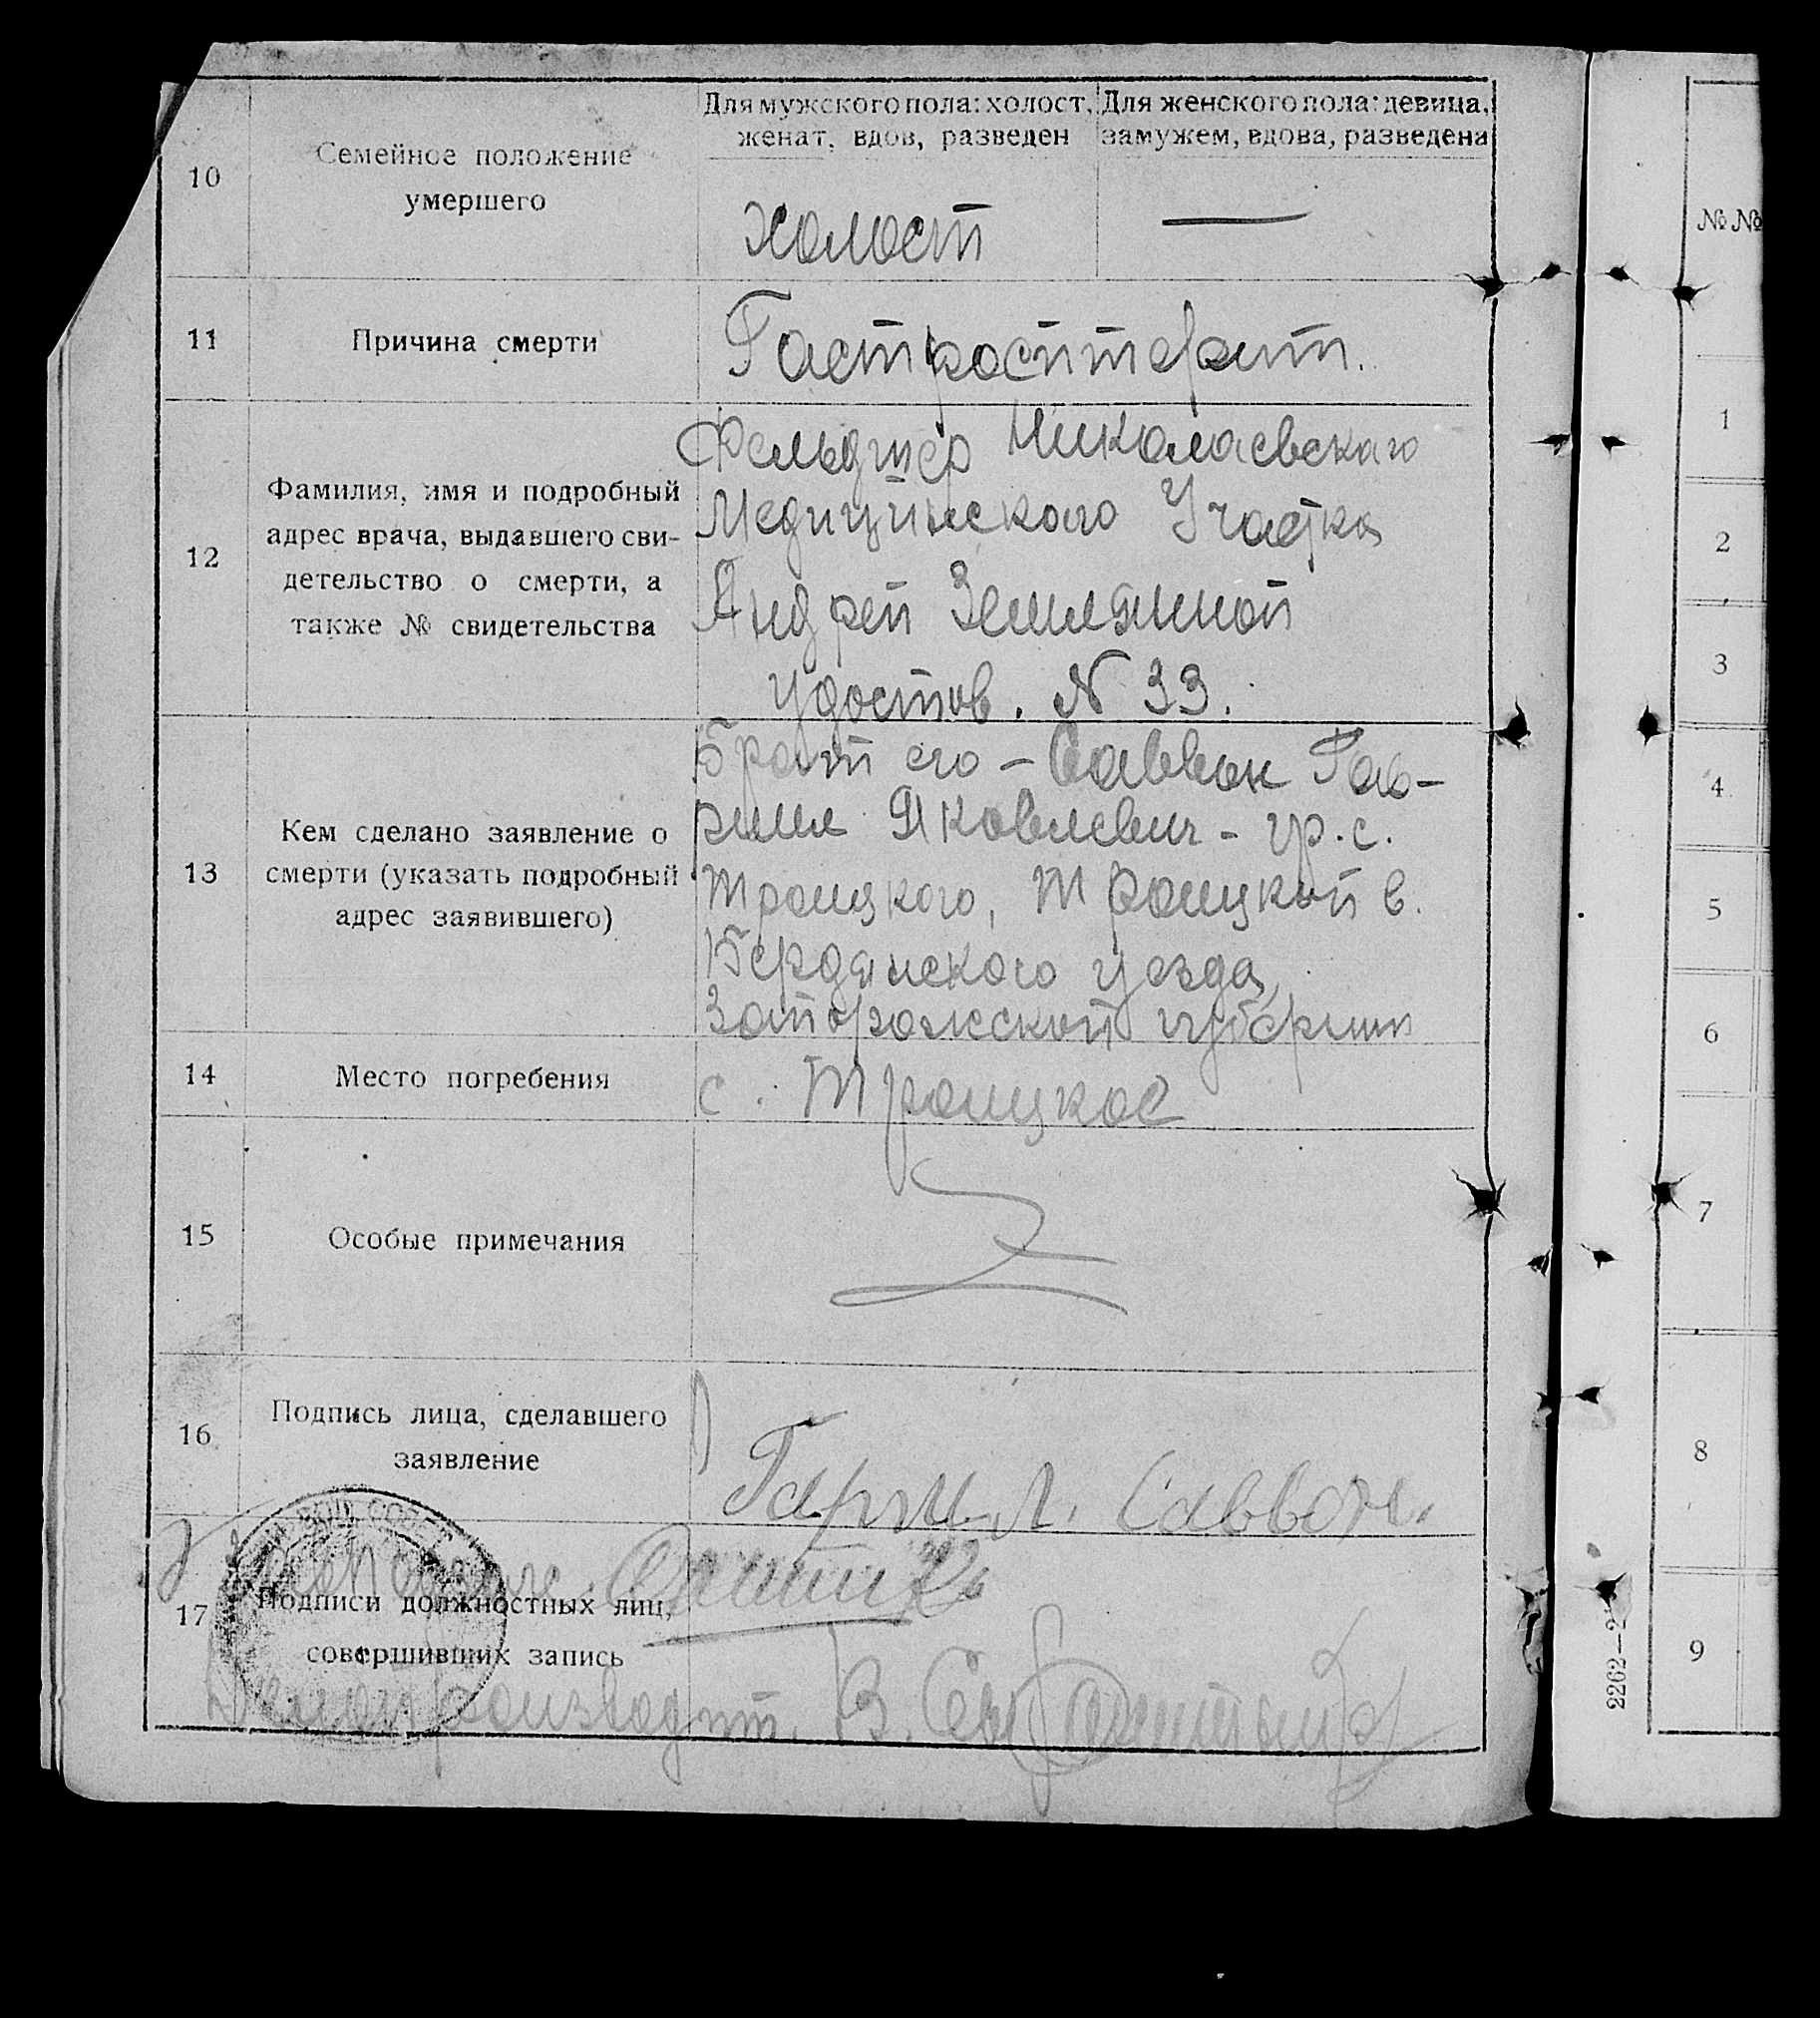 Для мужского пола: холост,
женат, вдов, разведен
Для женского пола: девица,
замужем, вдова, разведена
10
Семейное положение
умершего
холост
—
11
Причина смерти
12
Фамилия, имя и подробный
адрес врача, выдавшего сви-
детельство о смерти, а
также № свидетельства
Фельдшер Николаевскаго
Медицинского Участка
Андрей Землянной
удостов. N 33.
13
Кем сделано заявление о
смерти (указать подробный
адрес заявившего)
Брат его – Саввон Гав-
риил Яковлевич – гр. с.
Троицкого, Троицкой в.
Бердянского уезда,
Запорожской губернии
14
Место погребения
с. Троицкое
15
Особые примечания
16
Подпись лица, сделавшего
заявление
Саввон.
17
Подписи должностных лиц,
совершивших запись
Делопроизводит. В.
№№
1
2
3
4
5
6
7
8
9
2262—2